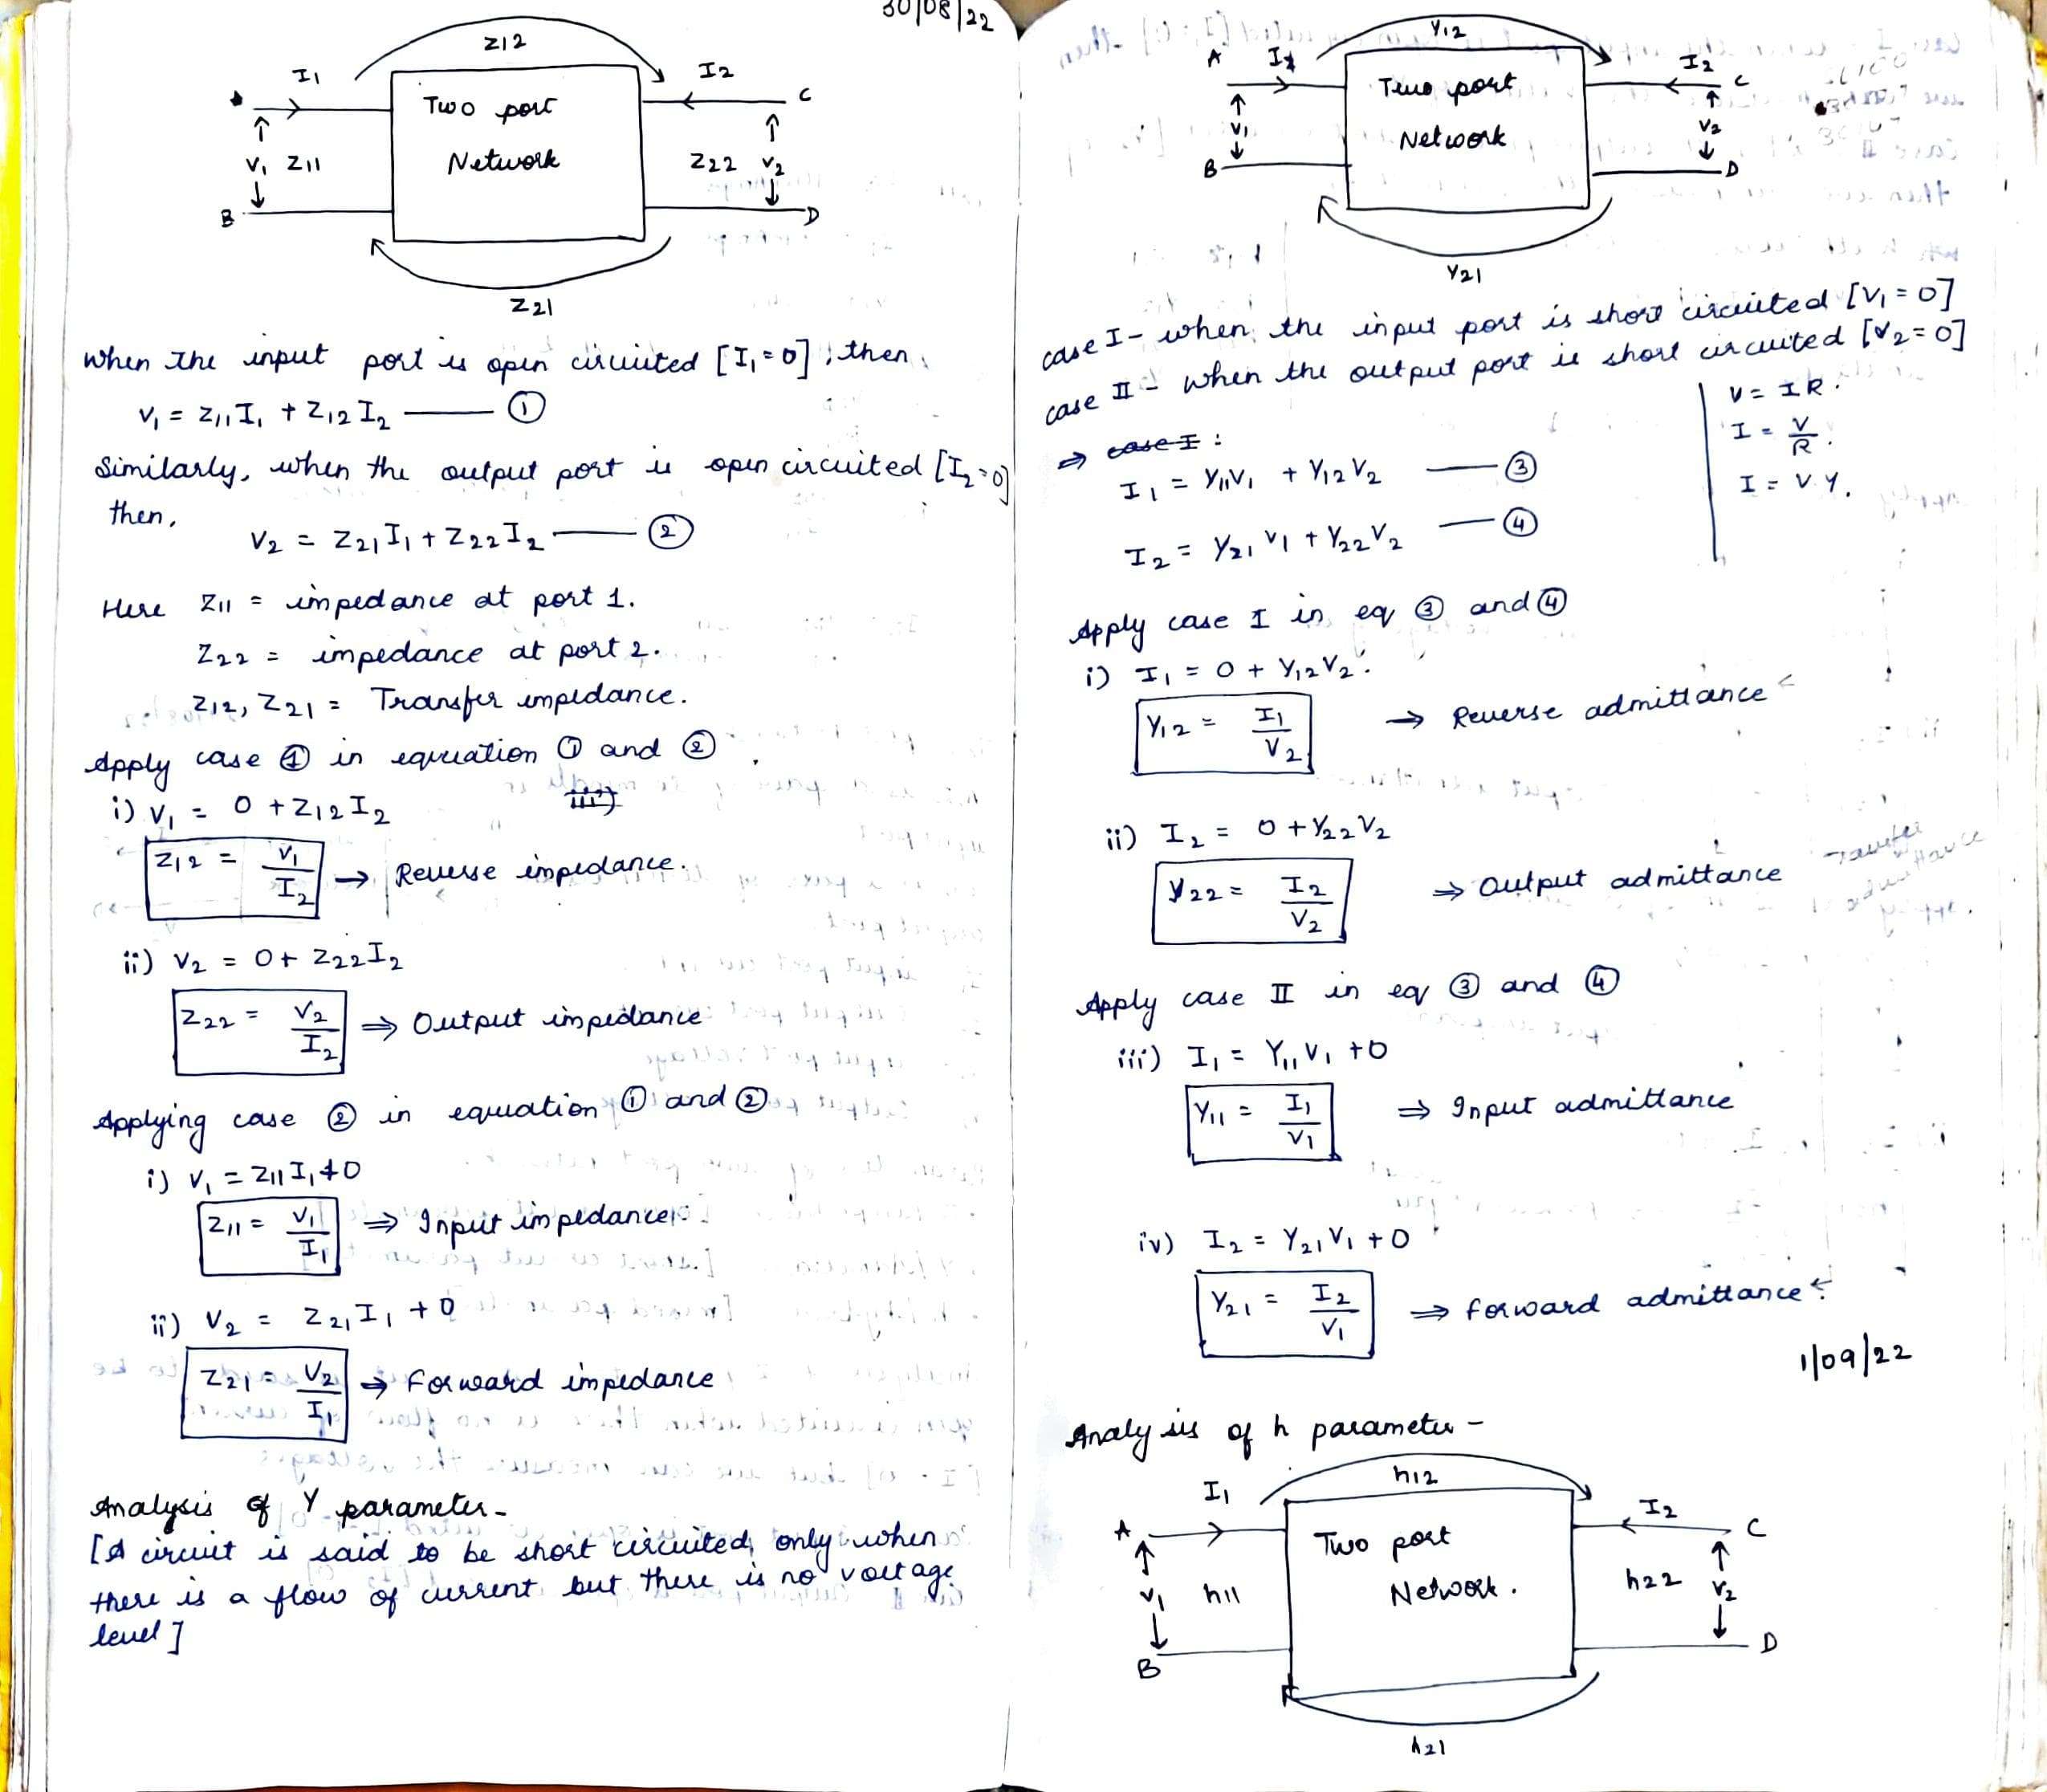 30/08/22
Z12
I1
I2
C
Two port
Network
V1 Z11
Z22 V2
B
D
Z21
When the input port is open circuited [I1=0]; then,
V1 = Z11 I1 + Z12 I2 —— ①
Similarly, when the output port is open circuited [I2=0]
then,
V2 = Z21 I1 + Z22 I2 —— ②
Here Z11 = impedance at port 1.
Z22 = impedance at port 2.
Z12, Z21 = Transfer impedance.
Apply case ① in equation ① and ②
i) V1 = 0 + Z12 I2
Z12 = V1/I2 → Reverse impedance.
ii) V2 = 0 + Z22 I2
Z22 = V2/I2 ⇒ Output impedance
Applying case ② in equation ① and ②
i) V1 = Z11 I1 + 0
Z11 = V1/I1 ⇒ Input impedance.
ii) V2 = Z21 I1 + 0
Z21 = V2/I1 ⇒ Forward impedance
Analysis of Y parameter -
[A circuit is said to be short circuited, only when
there is a flow of current but there is no voltage
level]
Y12
A
I1
I2
C
Two port
Network
V1
V2
B
D
Y21
case I - when the input port is short circuited [V1 = 0]
case II - when the output port is short circuited [V2 = 0]
⇒ case I :
V = IR.
I = V/R.
I = V.Y.
I1 = Y11 V1 + Y12 V2 —— ③
I2 = Y21 V1 + Y22 V2 —— ④
Apply case I in eq ③ and ④
i) I1 = 0 + Y12 V2.
Y12 = I1/V2 → Reverse admittance
ii) I2 = 0 + Y22 V2
Y22 = I2/V2 ⇒ Output admittance
Apply case II in eq ③ and ④
iii) I1 = Y11 V1 + 0
Y11 = I1/V1 ⇒ Input admittance
iv) I2 = Y21 V1 + 0
Y21 = I2/V1 ⇒ forward admittance
1/09/22
Analysis of h parameter -
h12
I1
I2
A
C
Two port
Network.
V1 h11
h22 V2
B
D
h21